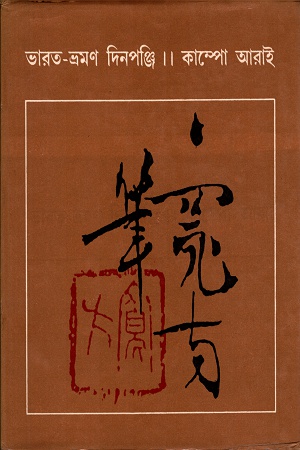 ভারত-ভ্রমণ দিনপঞ্জি ।। কাম্পো আরাই
寛方
筆